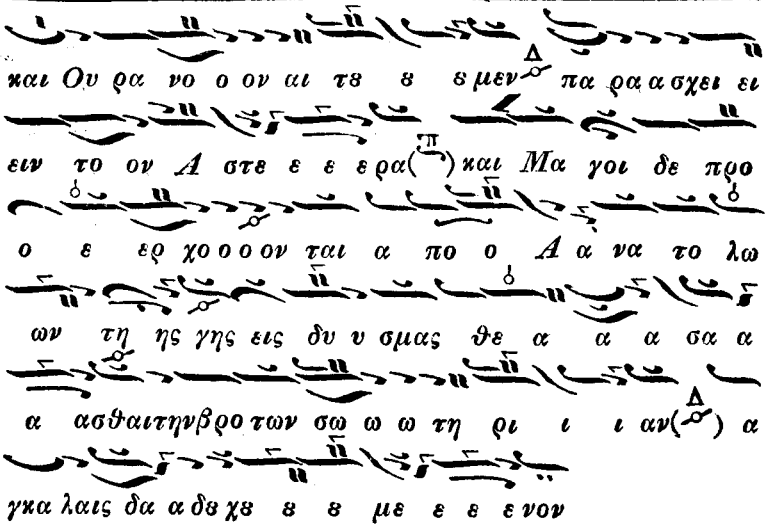 και Ου ρα νο ο ον αι τȣ ȣ ȣ μεν Δ πα ρα α σχει ει
ειν το ον Α στε ε ε ε ρα( π ) και Μα γοι δε προ
ο ε ερ χο ο ο ον ται α πο ο Α α να το λω
ων τη ης γης εις δυ υ σμας θε α α α σα α
α ασθαι την βρο των σω ω ω τη ρι ι ι αν( Δ ) α
γκα λαις δα α δȣ χȣ ȣ ȣ με ε ε ε νον